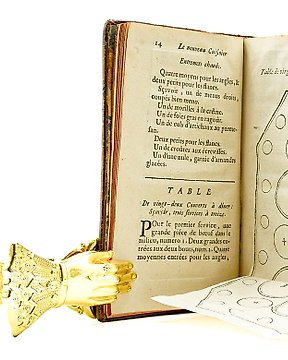 14 Le nouveau Cuisinier
Entremets chauds.
Quatre moyens pour les angles, &
deux petits pour les flancs.
Sçavoir, un de menus droits,
coupés bien menu.
Un de morilles à la crême.
Un de foies gras en ragoût.
Un de culs d'artichaux au parme-
san.
Deux petits pour les flancs.
Un de crêtes aux écrevisses.
Un d'une aule, garnie d'amandes
glacées.
TABLE
De vingt-deux Couverts à dîner;
Sçavoir, trois services à treize.
POur le premier service, une
grande pièce de bœuf dans le
milieu, numero 1. Deux grandes en-
trées aux deux bouts, num. 2. Quatre
moyennes entrées pour les angles,
Table de vingt